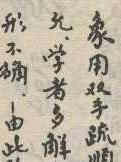 象用双手疏顺
允学者多解
形不确,由此